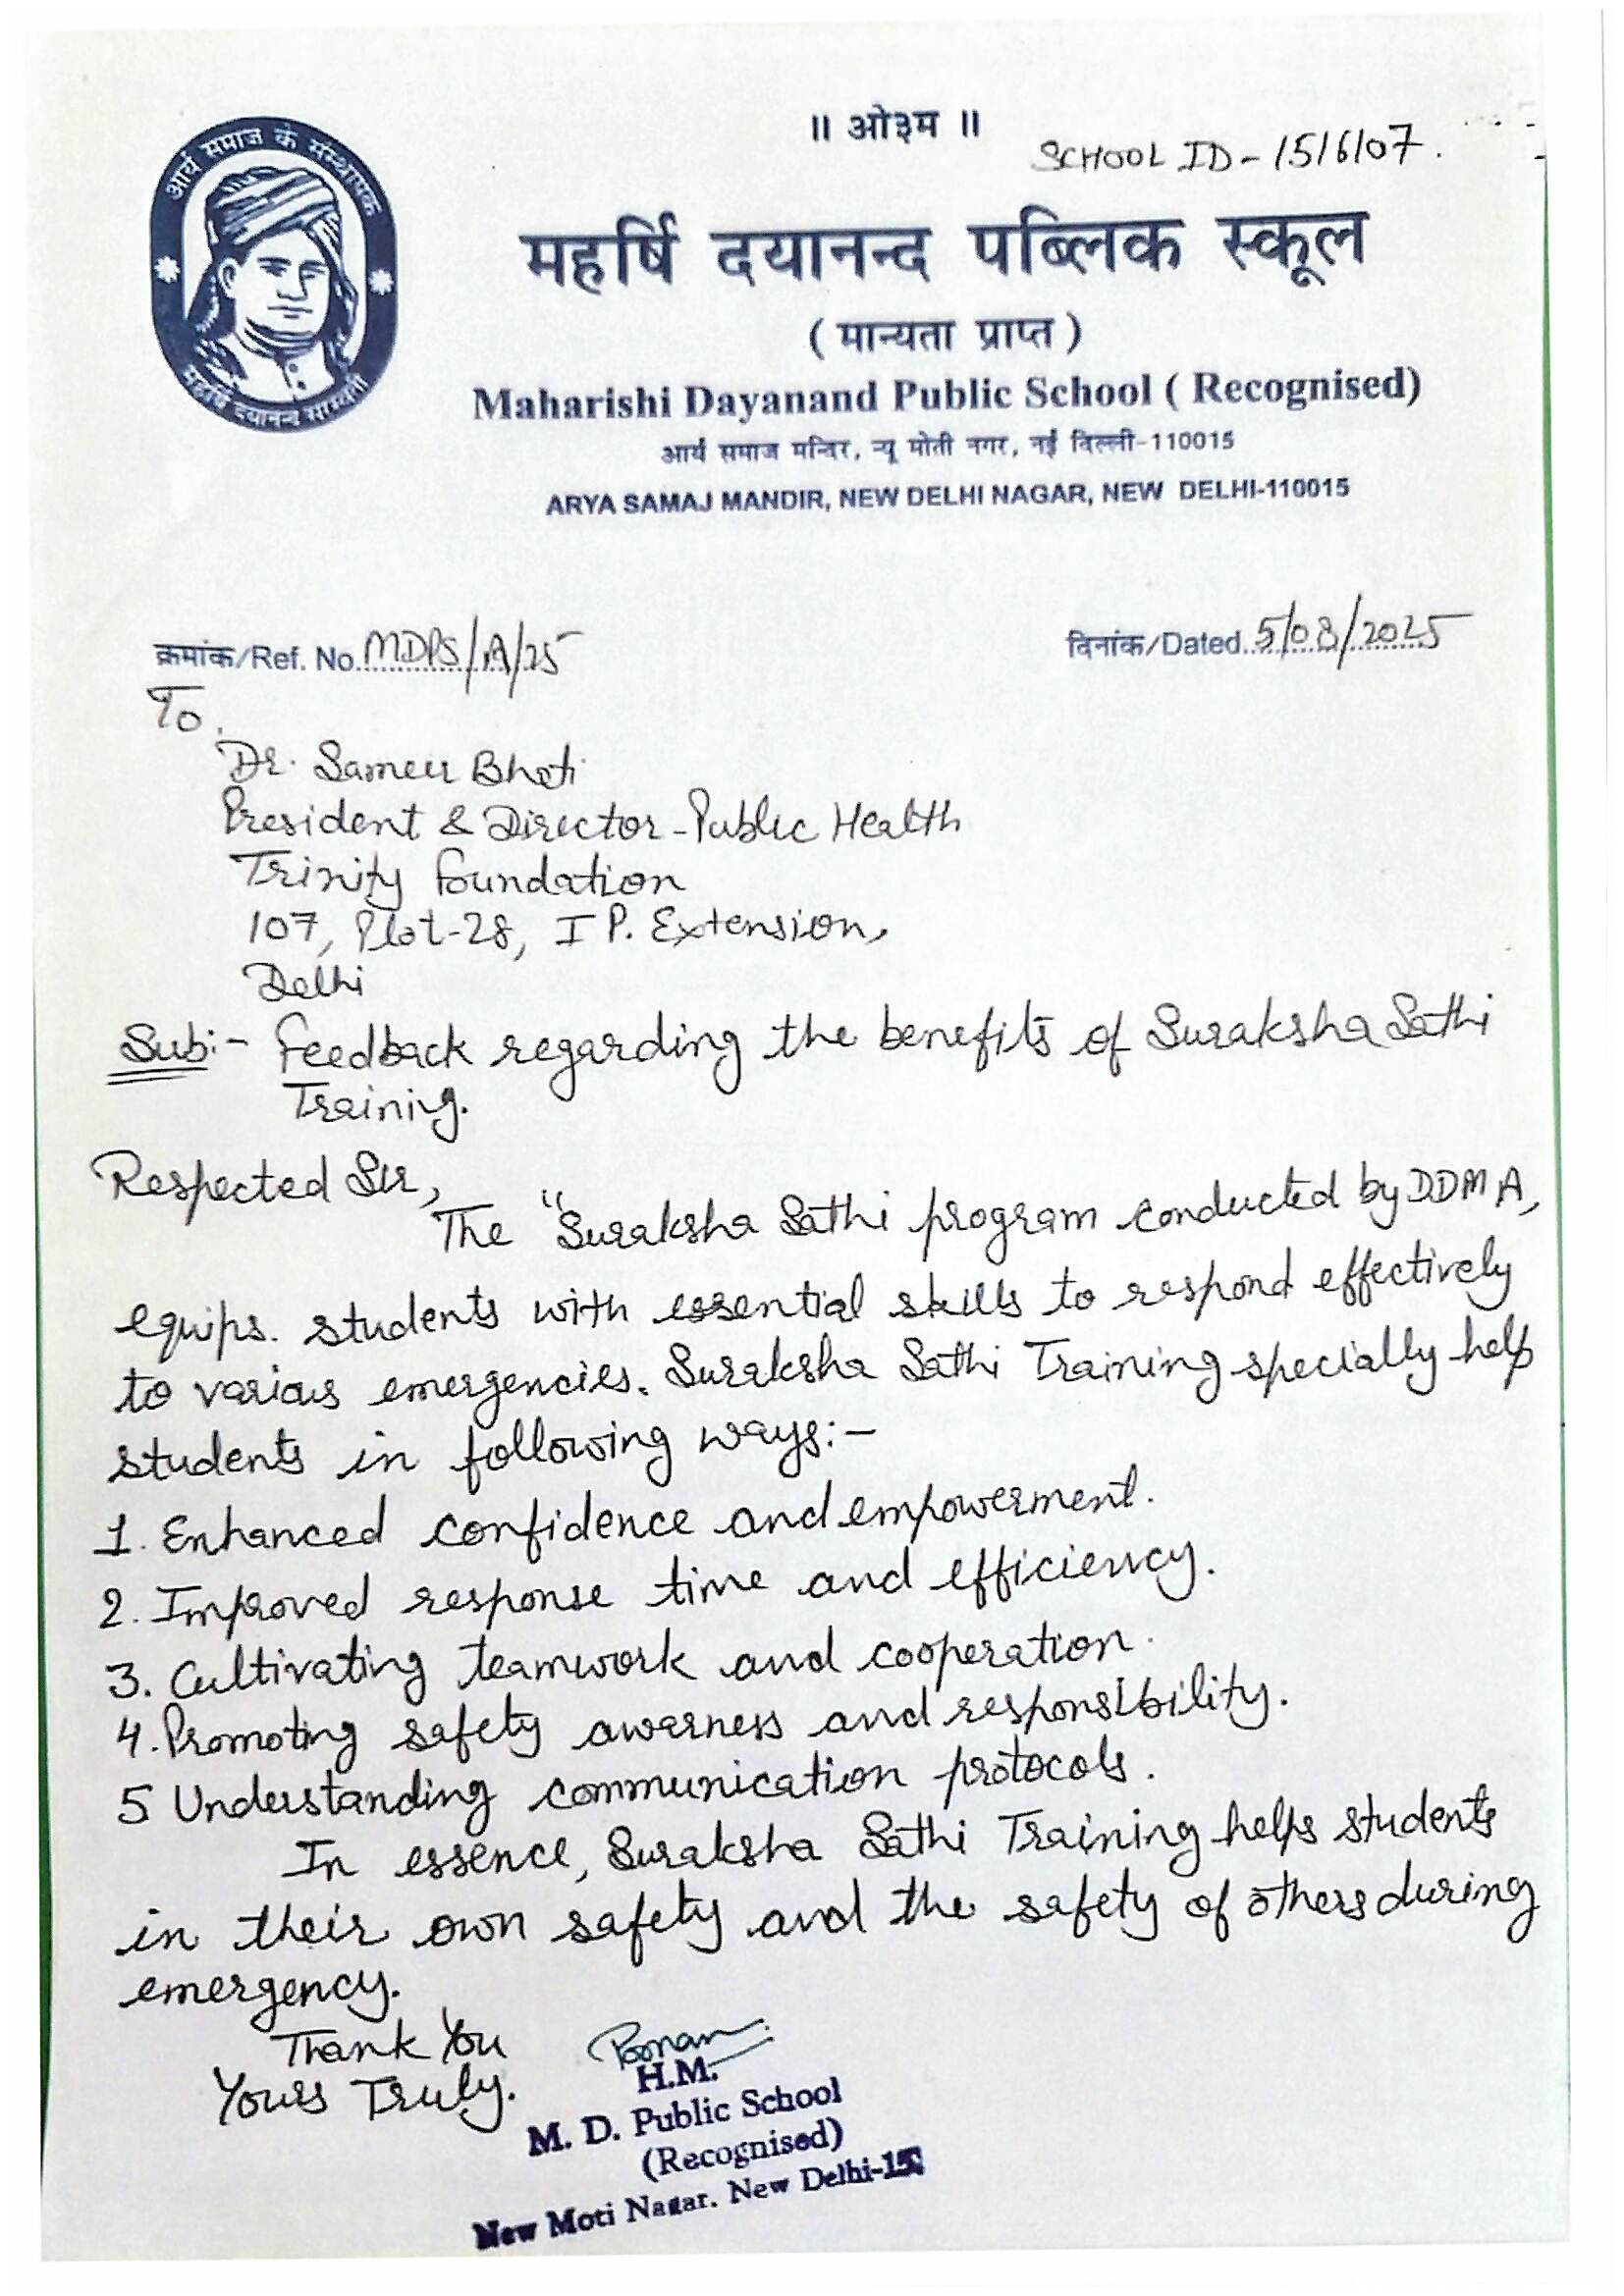 ॥ ओ३म ॥
SCHOOL ID - 1516107.
आर्य समाज के संस्थापक
महर्षि दयानन्द सरस्वती
महर्षि दयानन्द पब्लिक स्कूल
( मान्यता प्राप्त )
Maharishi Dayanand Public School ( Recognised)
आर्य समाज मन्दिर, न्यू मोती नगर, नई दिल्ली-110015
ARYA SAMAJ MANDIR, NEW DELHI NAGAR, NEW DELHI-110015
क्रमांक/Ref. No. MDPS/A/25
दिनांक/Dated. 5/08/2025
To,
Dr. Sameer Bhati
President & Director - Public Health
Trinity Foundation
107, Plot-28, I P. Extension,
Delhi
Sub:- Feedback regarding the benefits of Suraksha Sathi
Training.
Respected Sir,
The "Suraksha Sathi program conducted by DDMA,
equips. students with essential skills to respond effectively
to various emergencies. Suraksha Sathi Training specially help
students in following ways:-
1. Enhanced confidence and empowerment.
2. Improved response time and efficiency.
3. Cultivating teamwork and cooperation.
4. Promoting safety awarness and responsibility.
5 Understanding communication protocols.
In essence, Suraksha Sathi Training helps students
in their own safety and the safety of others during
emergency.
Thank You
Yours Truly.
Poonam
H.M.
M. D. Public School
(Recognised)
New Moti Nagar. New Delhi-15